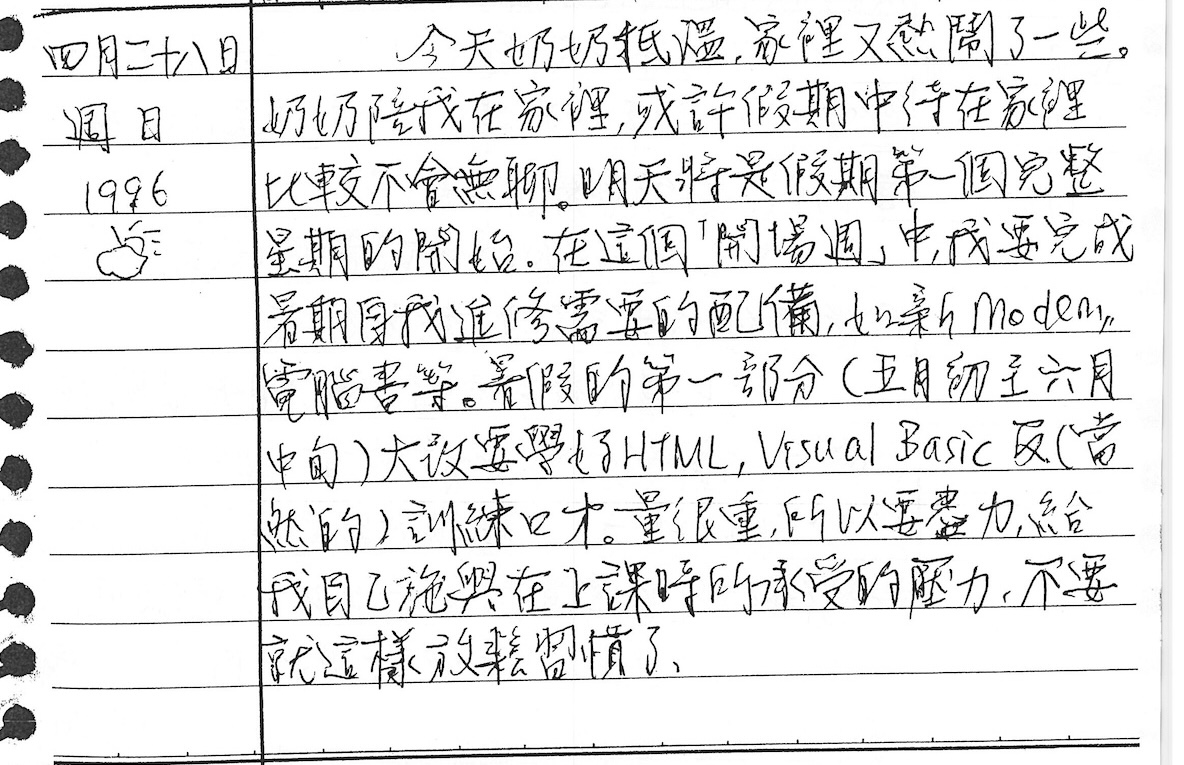 四月二十八日
週日
1996
今天奶奶抵溫,家裡又熱鬧了一些。
奶奶陪我在家裡,或許假期中待在家裡
比較不會無聊。明天將是假期第一個完整
星期的開始.在這個「開場週」中,我要完成
暑期自我進修需要的配備,如新Modem,
電腦書等。暑假的第一部分(五月初至六月
中旬)大致要學好HTML, Visual Basic 及(當
然的)訓練口才。量很重,所以要盡力,給
我自己施與在上課時所承受的壓力、不要
就這樣放鬆習慣了、